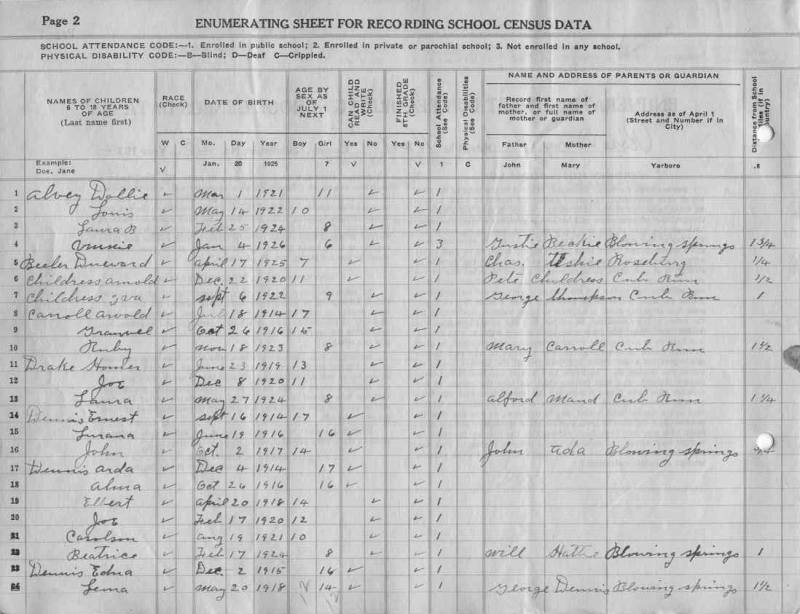 Page 2
ENUMERATING SHEET FOR RECORDING SCHOOL CENSUS DATA
SCHOOL ATTENDANCE CODE:—1. Enrolled in public school; 2. Enrolled in private or parochial school; 3. Not enrolled in any school.
PHYSICAL DISABILITY CODE:—B—Blind; D—Deaf C—Crippled.
NAMES OF CHILDREN 6 TO 18 YEARS OF AGE (Last name first) RACE (Check) DATE OF BIRTH AGE BY SEX AS OF JULY 1 NEXT CAN CHILD READ AND WRITE (Check) FINISHED 8TH GRADE (Check) School Attendance (See Code) Physical Disabilities (See Code) NAME AND ADDRESS OF PARENTS OR GUARDIAN Distance from School
Record first name of father and first name of mother, or full name of mother or guardian Address as of April 1 (Street and Number if in City)
W C Mo. Day Year Boy Girl Yes No Yes No Father Mother
Example: Doe, Jane V Jan. 20 1925 7 V V 1 C John Mary Yarboro .5
1 Alvey Dollie ✓ Mar 1 1921 11 ✓ ✓ 1
2 Louis ✓ May 14 1922 10 ✓ ✓ 1
3 Laura B ✓ Feb 25 1924 8 ✓ ✓ 1
4 ✓ Jan 4 1926 6 ✓ ✓ 3 Blowing springs 1 3/4
5 Beeler Dueward ✓ April 17 1925 7 ✓ ✓ 1 Chas. Roseburg 1/4
6 Childress Arnold ✓ Dec. 22 1920 11 ✓ ✓ 1 Pete Childress Cub Run 1/2
7 Childress ✓ Sept 6 1922 9 ✓ ✓ 1 George Thompson Cub Run 1
8 Carroll Arvold ✓ 18 1914 17 ✓ 1
9 ✓ Oct 26 1916 15 ✓ 1
10 Ruby ✓ Nov 18 1923 8 ✓ ✓ 1 Mary Carroll Cub Run 1 1/2
11 Drake Homer ✓ June 23 1919 13 ✓ 1
12 Joe ✓ Dec 8 1920 11 ✓ 1
13 Laura ✓ May 27 1924 8 ✓ ✓ 1 Alford Maud Cub Run 1 1/4
14 Dennis Ernest ✓ Sept 16 1914 17 ✓ ✓ 1
15 Lurana ✓ June 19 1916 16 ✓ ✓ 1
16 John ✓ Oct. 2 1917 14 ✓ ✓ 1 John Ada Blowing springs
17 Dennis Arda ✓ Dec 4 1914 17 ✓ ✓ 1
18 Alma ✓ Oct 26 1916 16 ✓ ✓ 1
19 Elbert ✓ April 20 1918 14 ✓ ✓ 1
20 Joe ✓ Feb 17 1920 12 ✓ ✓ 1
21 Carolson ✓ Aug 19 1921 10 ✓ ✓ 1
22 Beatrice ✓ Feb 17 1924 8 ✓ ✓ 1 Will Hattie Blowing springs 1
23 Dennis Edna ✓ Dec. 2 1915 16 ✓ ✓ 1
24 Lema ✓ May 20 1918 14 ✓ ✓ 1 George Dennis Blowing springs 1 1/2